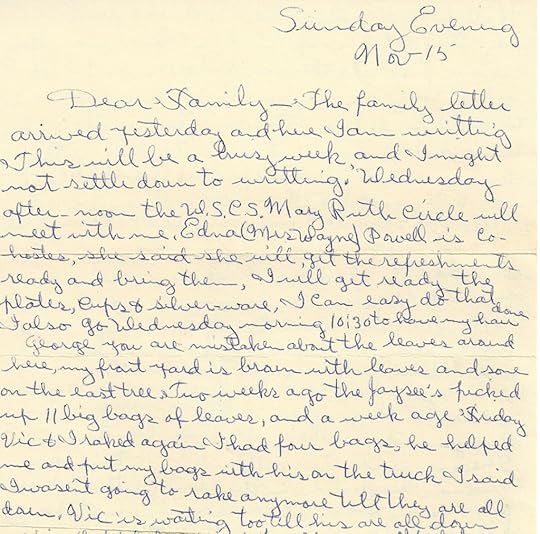 Sunday Evening
Nov-15
Dear Family - The family letter
arrived yesterday and here I am writting
This will be a busy week and I might
not settle down to writting. Wednesday
after-noon the W.S.C.S. Mary Ruth Circle will
meet with me, Edna (Mrs Wayne) Powell is co-
hostes, she said she will, get the refreshments
ready and bring them, I will get ready the
plates, cups & silver-ware, I can easy do that
I also go Wednesday morning 10:30 to have my hair done
George you are mistaken about the leaves around
here, my front yard is brown with leaves and some
on the east tree. Two weeks ago the Jaysee's picked
up 11 big bags of leaves, and a week age Friday
Vic & I raked again I had four bags, he helped
me and put my bags with his on the truck I said
I wasent going to rake anymore till they are all
down, Vic is waiting too till his are all down